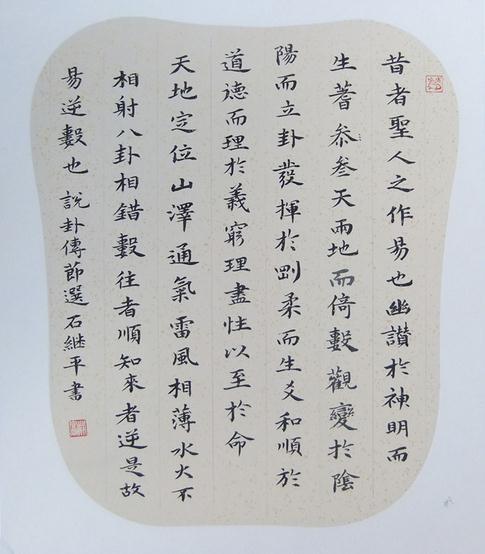 昔者聖人之作易也幽讃於神明而
生蓍叅叁天兩地而倚數觀變於陰
陽而立卦發揮於剛柔而生爻和順於
道德而理於義窮理盡性以至於命
天地定位山澤通氣雷風相薄水火不
相射八卦相錯數往者順知來者逆是故
易逆數也 說卦傳節選石継平書